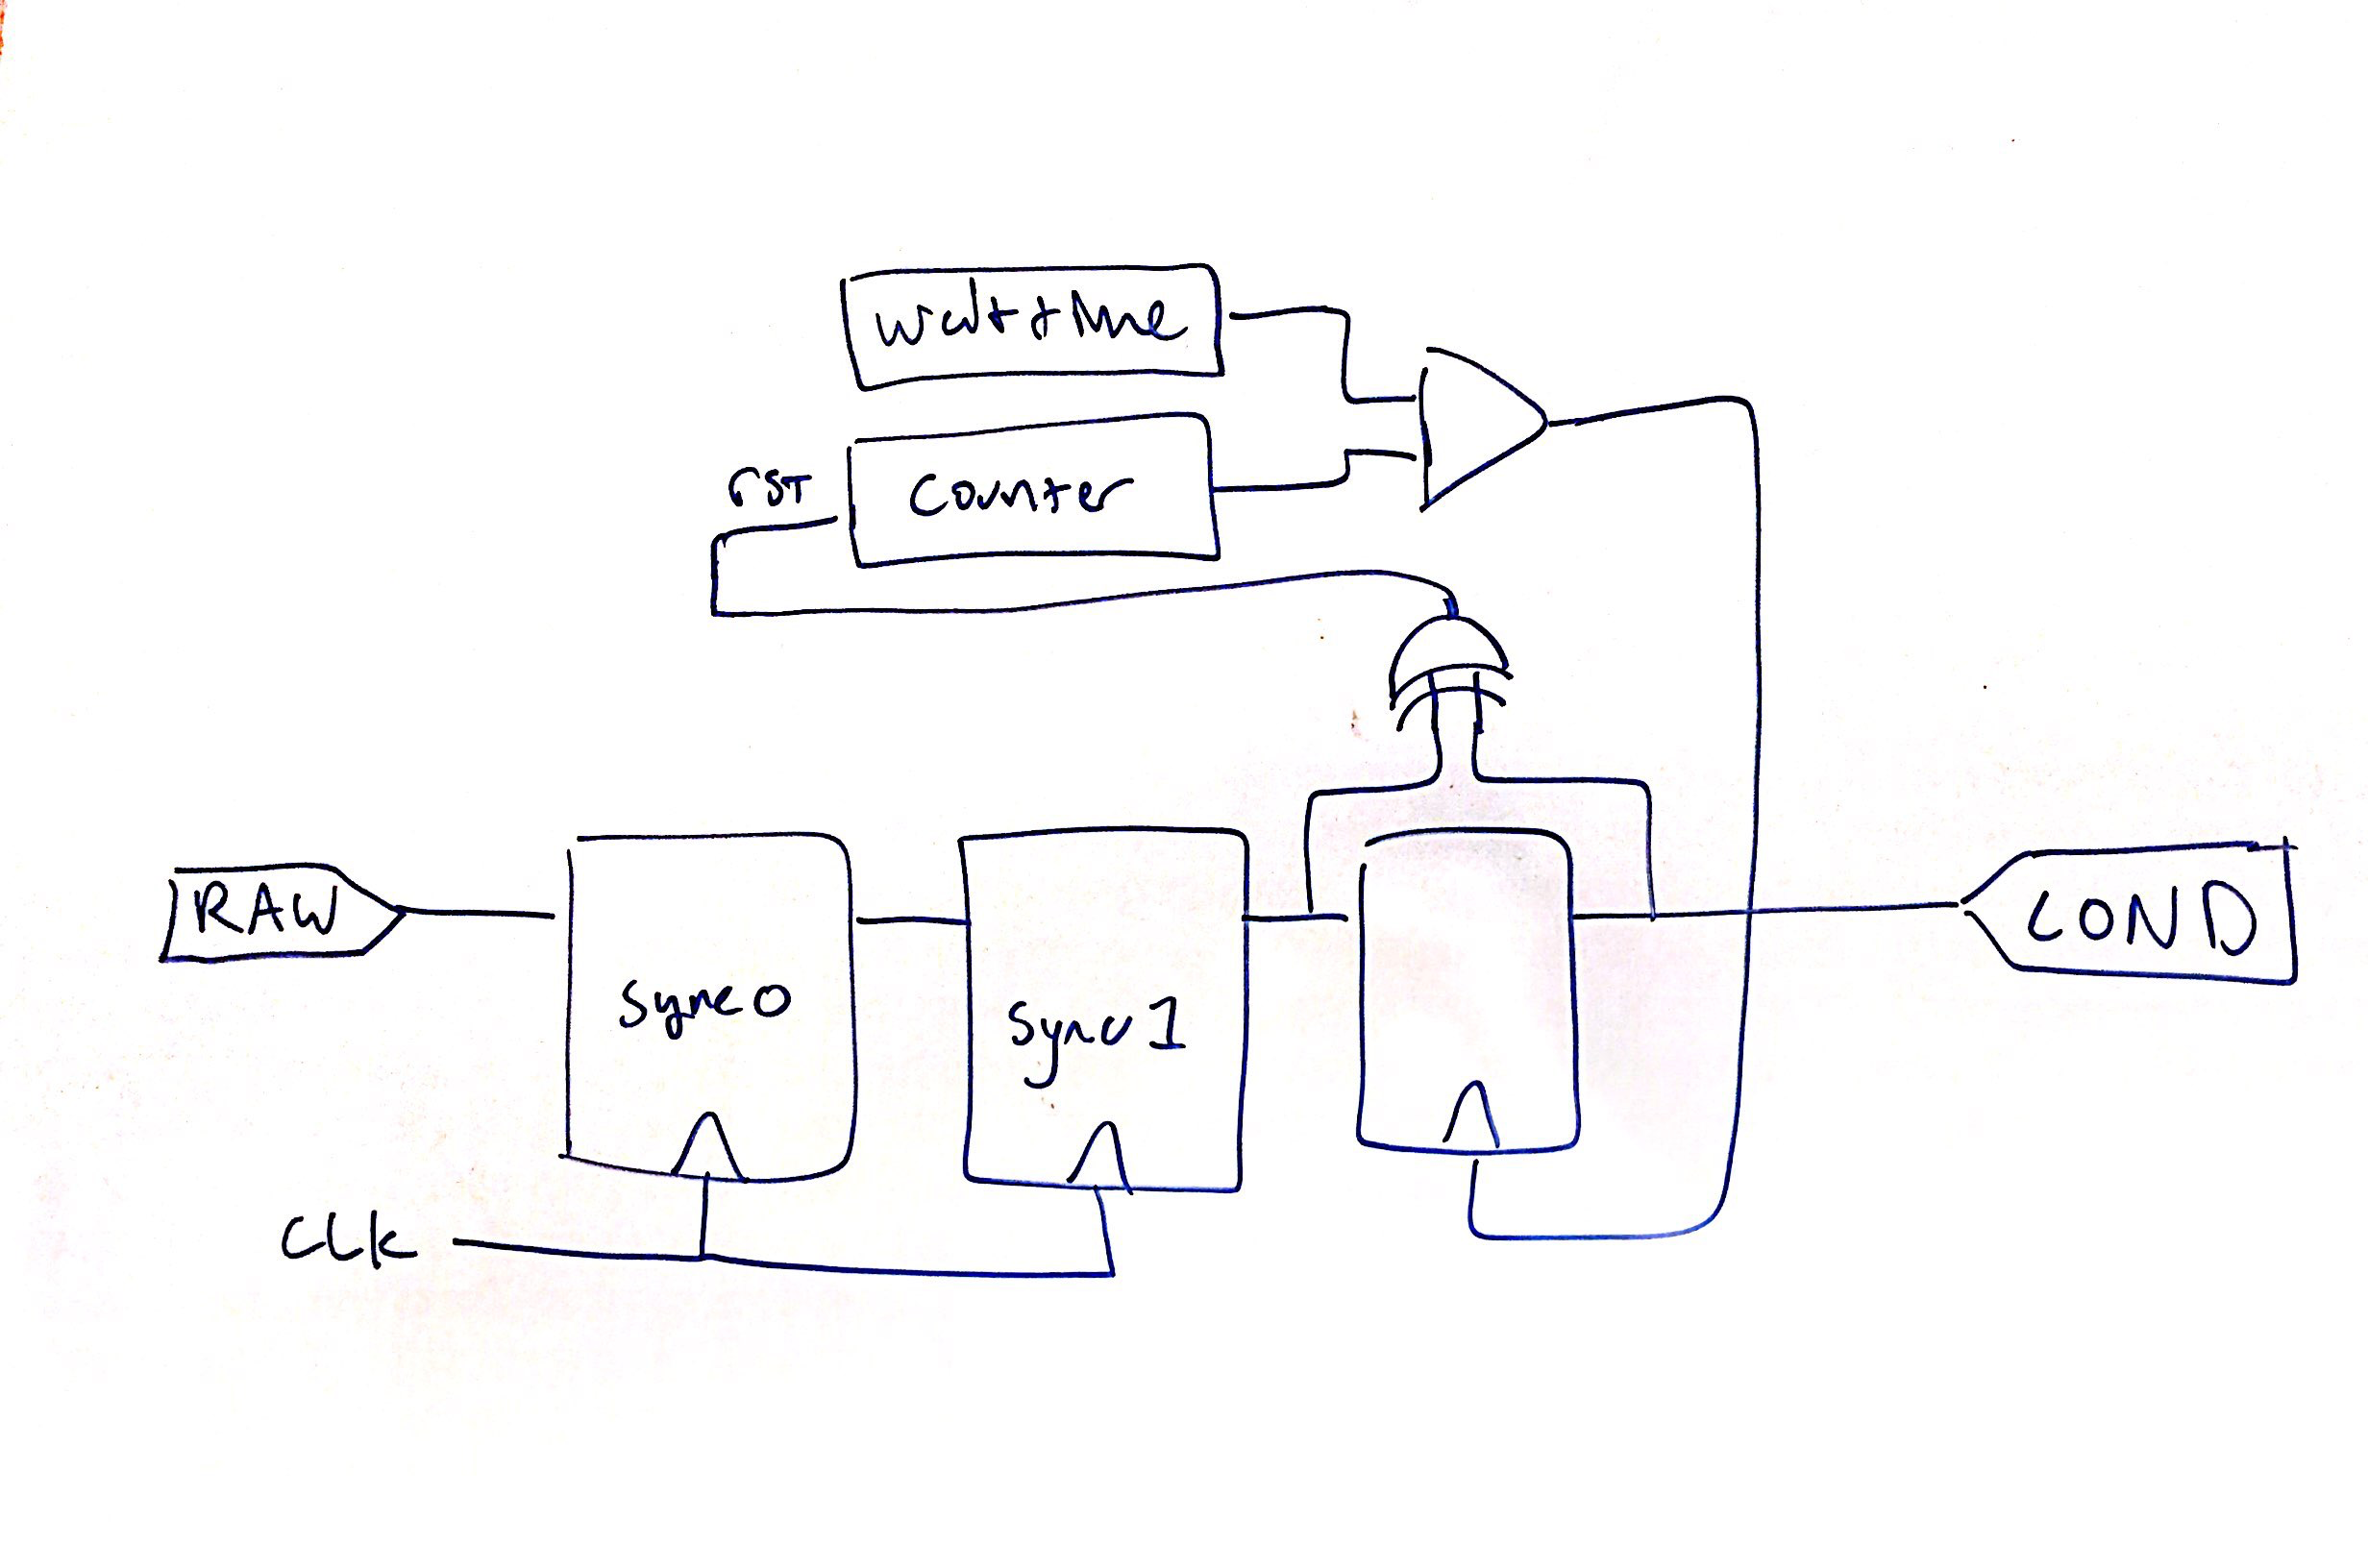 waittime
rst
counter
RAW
sync0
sync1
COND
CLK